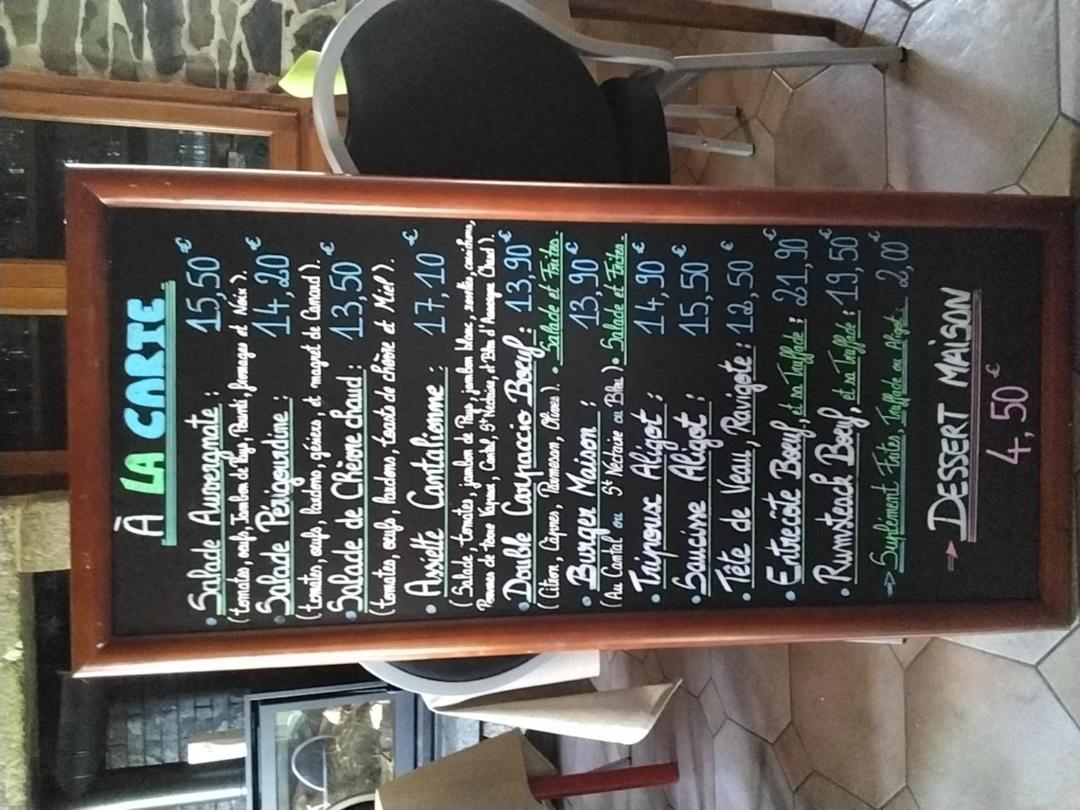 À LA CARTE
• Salade Auvergnate : 15,50€
(tomates, œufs, Jambon de Pays, Pounti, fromages et Noix).
• Salade Périgourdine : 14,20€
(tomates, œufs, lardons, gésiers, et magret de Canard).
• Salade de Chèvre chaud : 13,50€
(tomates, œufs, lardons, toasts de chèvre et Miel).
• Assiette Cantalienne : 17,10€
(Salade, tomates, jambon de Pays, jambon blanc, cornichons,
Pommes de terre Vapeur, Cantal, St Nectaire, et Bleu d'Auvergne Chaud).
• Double Carpaccio Boeuf : 13,90€
(Citron, Câpres, Parmesan, Olives). • Salade et Frites.
• Burger Maison : 13,90€
(Au Cantal ou St Nectaire ou Bleu) • Salade et Frites.
• Tripoux Aligot : 14,90€
• Saucisse Aligot : 15,50€
• Tête de Veau, Ravigote : 12,50€
• Entrecôte Boeuf, et sa Truffade : 21,90€
• Rumsteack Boeuf, et sa Truffade : 19,50€
→ Suplément Frites, Truffade ou Aligot : 2,00€
→ DESSERT MAISON
4,50€